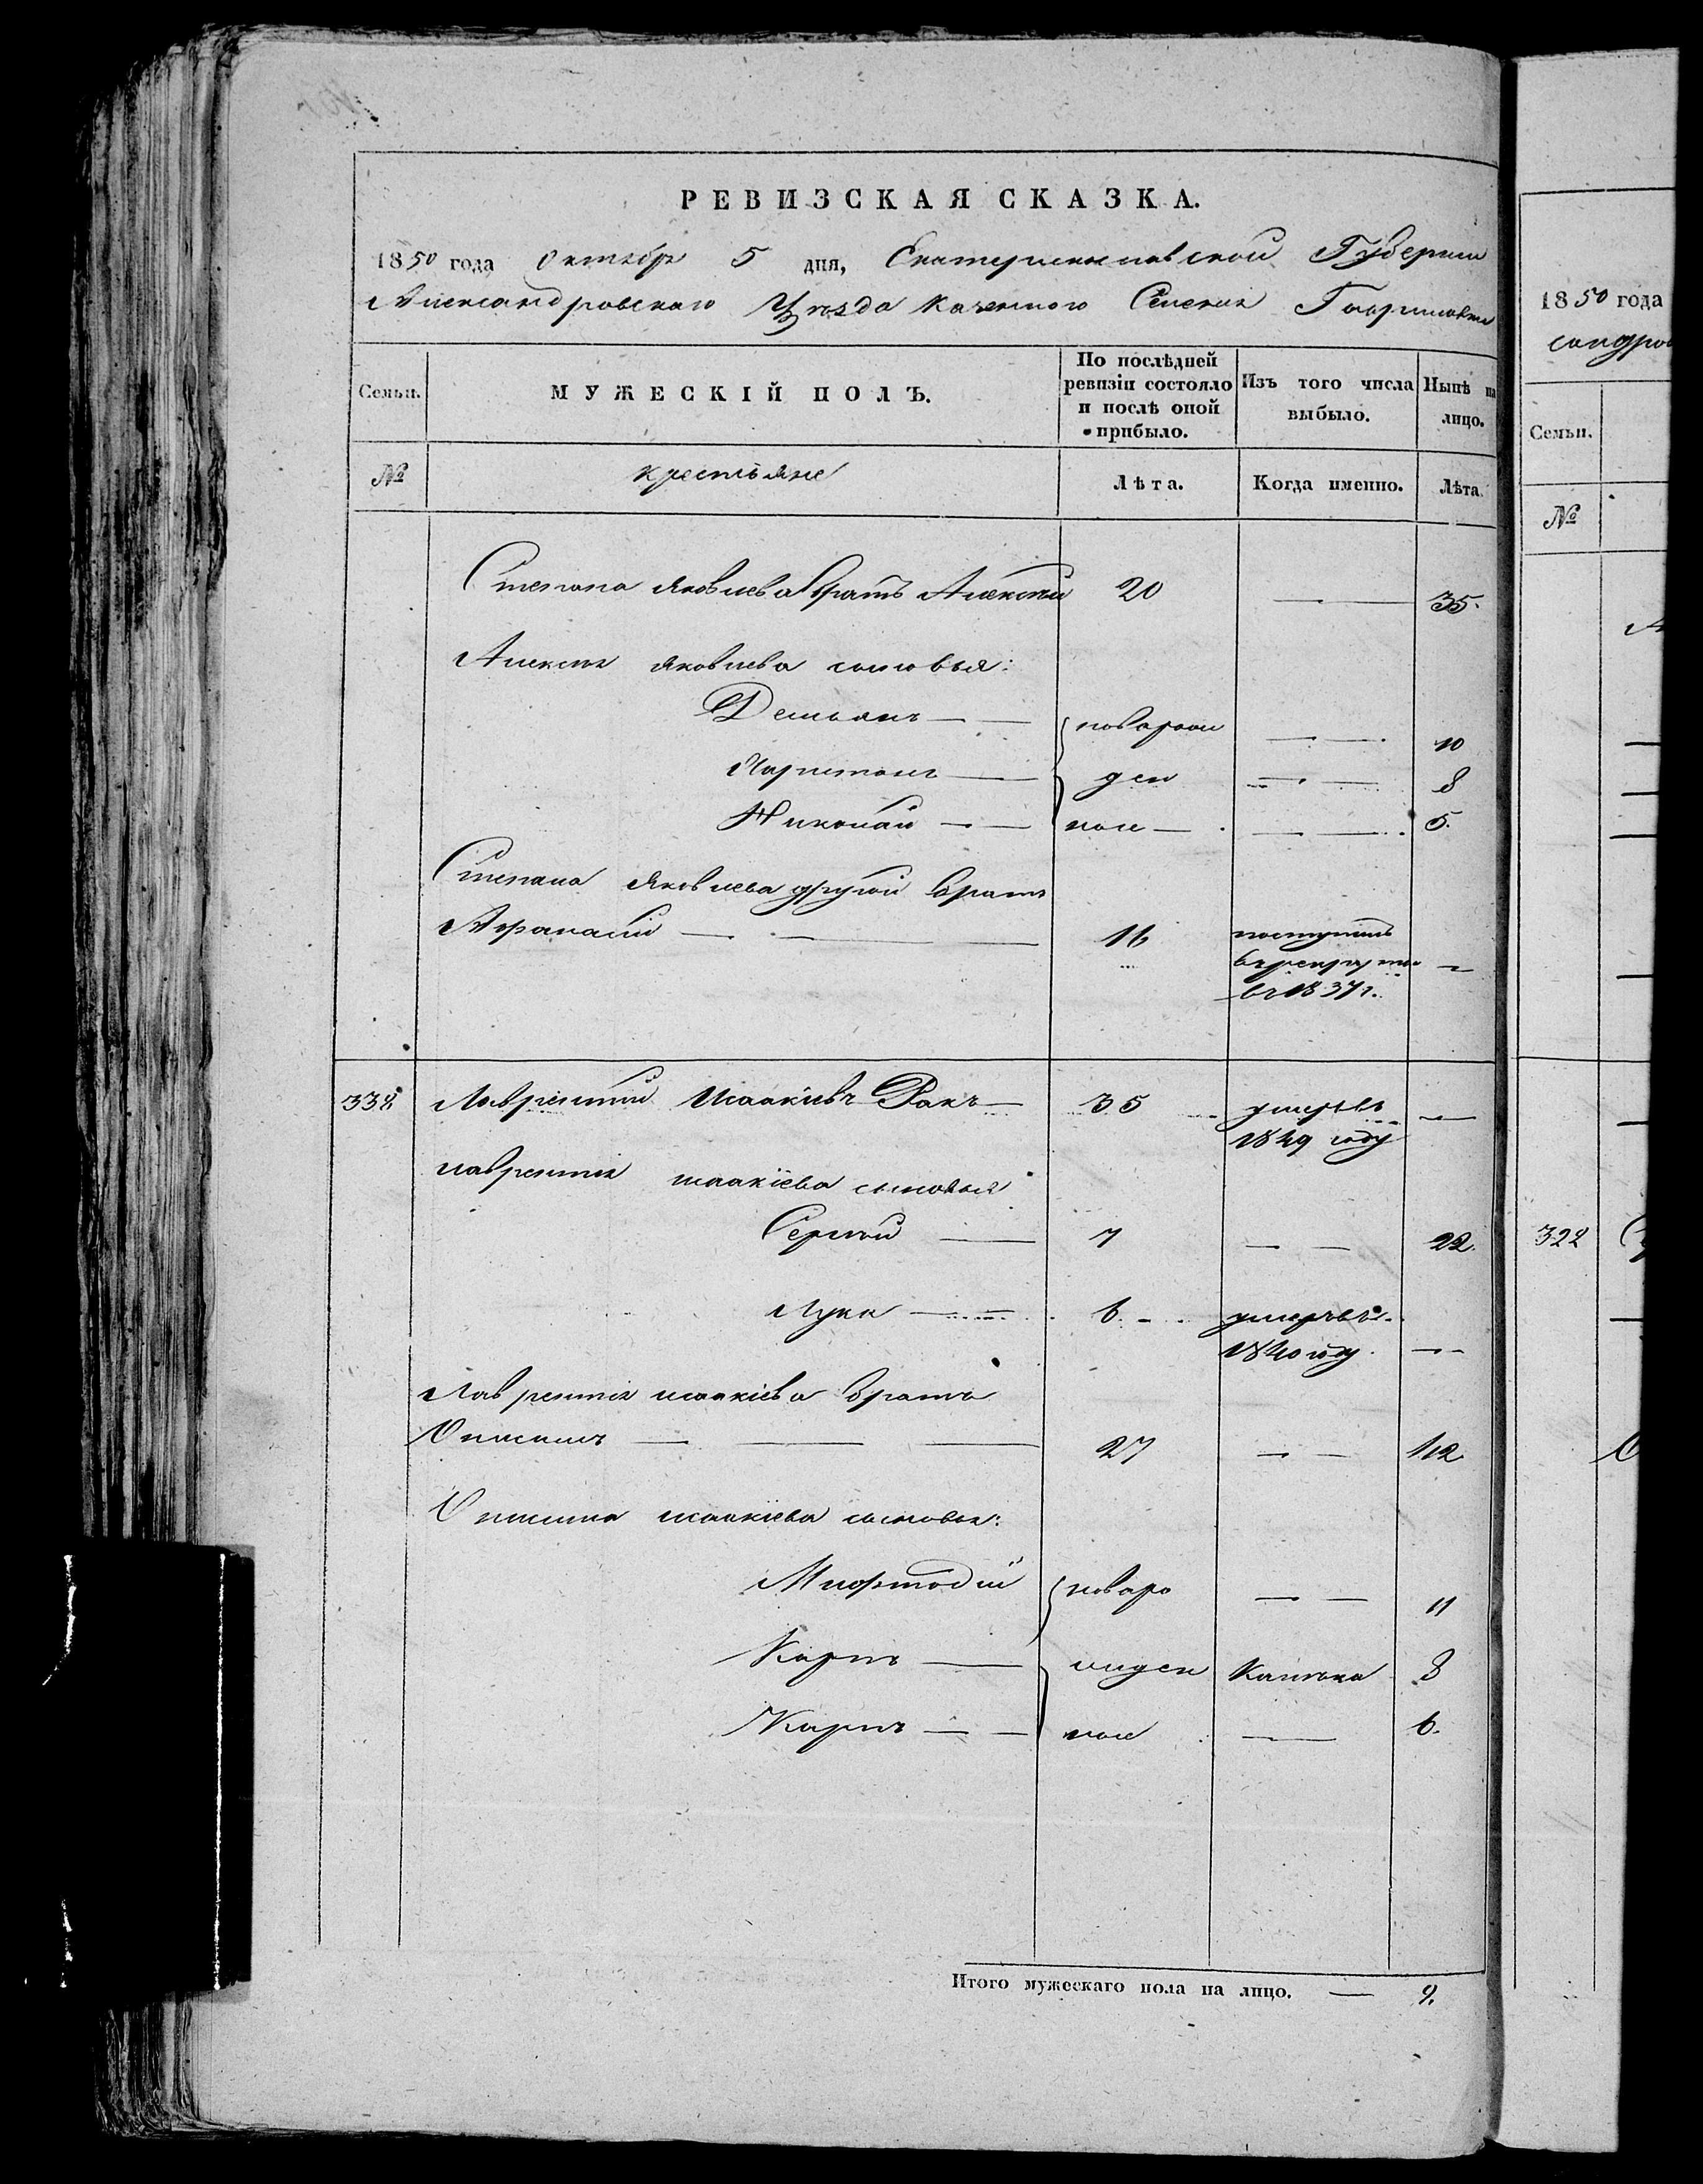 РЕВИЗСКАЯ СКАЗКА.
1850 года Октября 5 дня, Екатеринославской Губернии
Александровскаго Уѣзда Казенного Селения Гавриловки
Семьи. МУЖЕСКІЙ ПОЛЪ. По послѣдней ревизіи состояло и послѣ оной прибыло. Изъ того числа выбыло. Нынѣ на лицо.
№ крестьяне Лѣта. Когда именно. Лѣта.
Степана Яковлева братъ Алексѣй 20 — 35.
Алексѣя Яковлева сыновья:
Демьянъ — — новорож — — 10
Харитонъ — ден — — 8
Николай — — ные — — — 5.
Степана Яковлева другой братъ
Афанасій — — — 16 поступилъ
въ рекруты —
въ 1837 г.
338 Лаврентий Исаакіевъ Ракъ — 35 умеръ въ —
1849 году
Лаврентія Исаакіева сыновья
Сергѣй — 7 — — 22.
Лука — — 6. умеръ въ
1840 году. —
Лаврентія Исаакіева братъ
Онисимъ — — — 27 — — 42
Онисима Исаакіева сыновья:
Мефтодій новоро — — 11
Карпъ — жден 8
Карпъ — — ные — 6.
Итого мужескаго пола на лицо. — 9.
1850 года
сандров
Семьи.
№
322